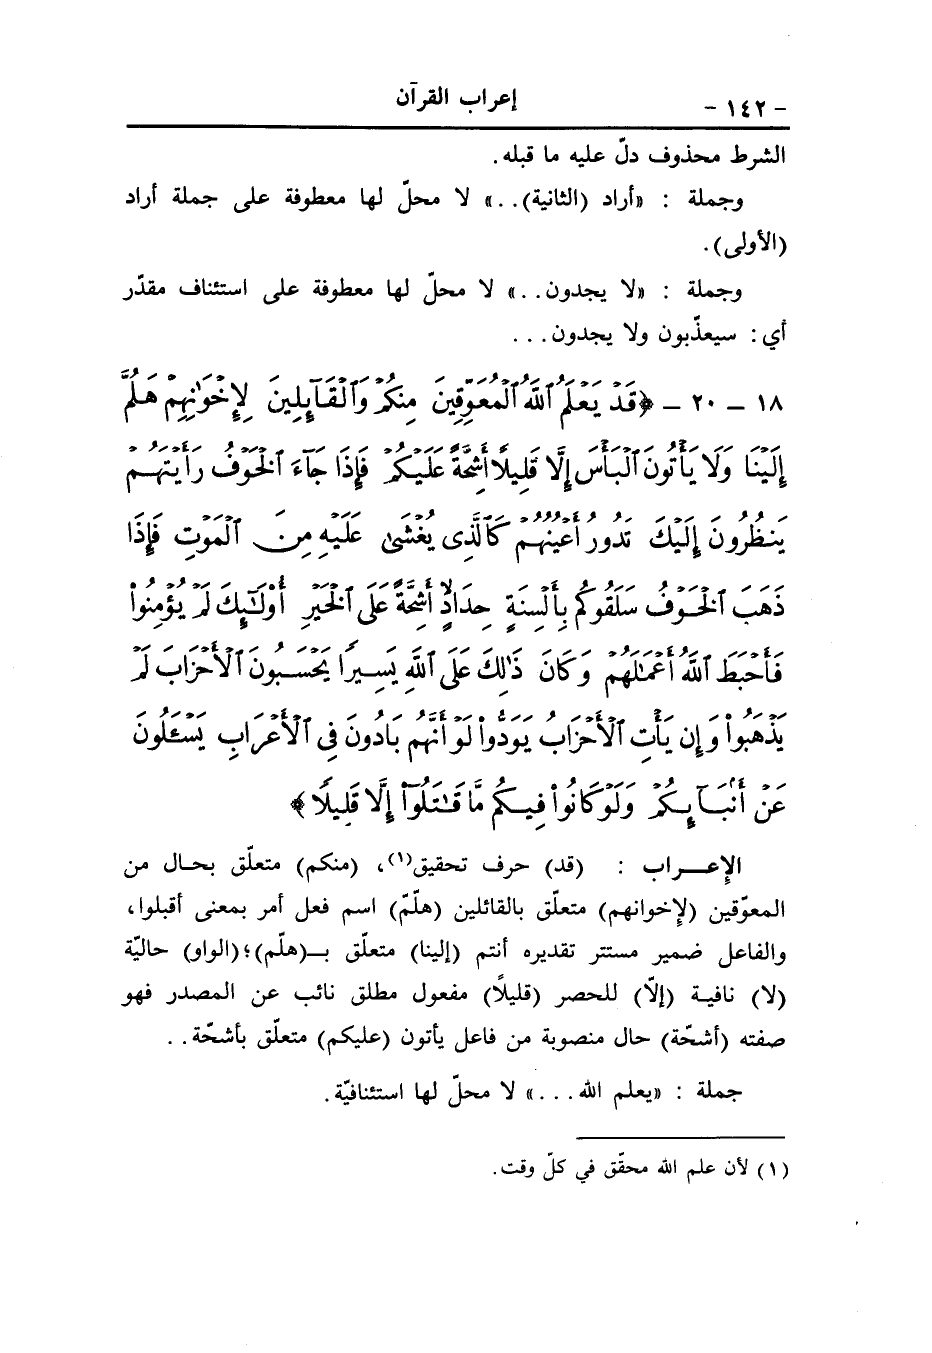 - ١٤٢ - إعراب القرآن
الشرط محذوف دلّ عليه ما قبله.
وجملة : «أراد (الثانية)..» لا محلّ لها معطوفة على جملة أراد
(الأولى).
وجملة : «لا يجدون...» لا محلّ لها معطوفة على استئناف مقدّر
أي: سيعذّبون ولا يجدون...
١٨ - ٢٠ - ﴿قَدْ يَعْلَمُ ٱللَّهُ ٱلْمُعَوِّقِينَ مِنكُمْ وَٱلْقَآئِلِينَ لِإِخْوَٰنِهِمْ هَلُمَّ
إِلَيْنَا وَلَا يَأْتُونَ ٱلْبَأْسَ إِلَّا قَلِيلًا أَشِحَّةً عَلَيْكُمْ فَإِذَا جَآءَ ٱلْخَوْفُ رَأَيْتَهُمْ
يَنظُرُونَ إِلَيْكَ تَدُورُ أَعْيُنُهُمْ كَٱلَّذِى يُغْشَىٰ عَلَيْهِ مِنَ ٱلْمَوْتِ فَإِذَا
ذَهَبَ ٱلْخَوْفُ سَلَقُوكُم بِأَلْسِنَةٍ حِدَادٍ أَشِحَّةً عَلَى ٱلْخَيْرِ أُوْلَٰٓئِكَ لَمْ يُؤْمِنُوا۟
فَأَحْبَطَ ٱللَّهُ أَعْمَٰلَهُمْ وَكَانَ ذَٰلِكَ عَلَى ٱللَّهِ يَسِيرًا يَحْسَبُونَ ٱلْأَحْزَابَ لَمْ
يَذْهَبُوا۟ وَإِن يَأْتِ ٱلْأَحْزَابُ يَوَدُّوا۟ لَوْ أَنَّهُم بَادُونَ فِى ٱلْأَعْرَابِ يَسْـَٔلُونَ
عَنْ أَنۢبَآئِكُمْ وَلَوْ كَانُوا۟ فِيكُم مَّا قَٰتَلُوٓا۟ إِلَّا قَلِيلًا﴾
الإعـــراب : (قد) حرف تحقيق(١)، (منكم) متعلّق بحـال من
المعوّقين (لإخوانهم) متعلّق بالقائلين (هلمّ) اسم فعل أمر بمعنى أقبلوا،
والفاعل ضمير مستتر تقديره أنتم (إلينا) متعلّق بـ(هلّم)؛(الواو) حاليّة
(لا) نافيـة (إلّا) للحصر (قليلًا) مفعول مطلق نائب عن المصدر فهو
صفته (أشحّة) حال منصوبة من فاعل يأتون (عليكم) متعلّق بأشحّة..
جملة : «يعلم الله...» لا محلّ لها استئنافيّة.
(١) لأن علم الله محقّق في كلّ وقت.